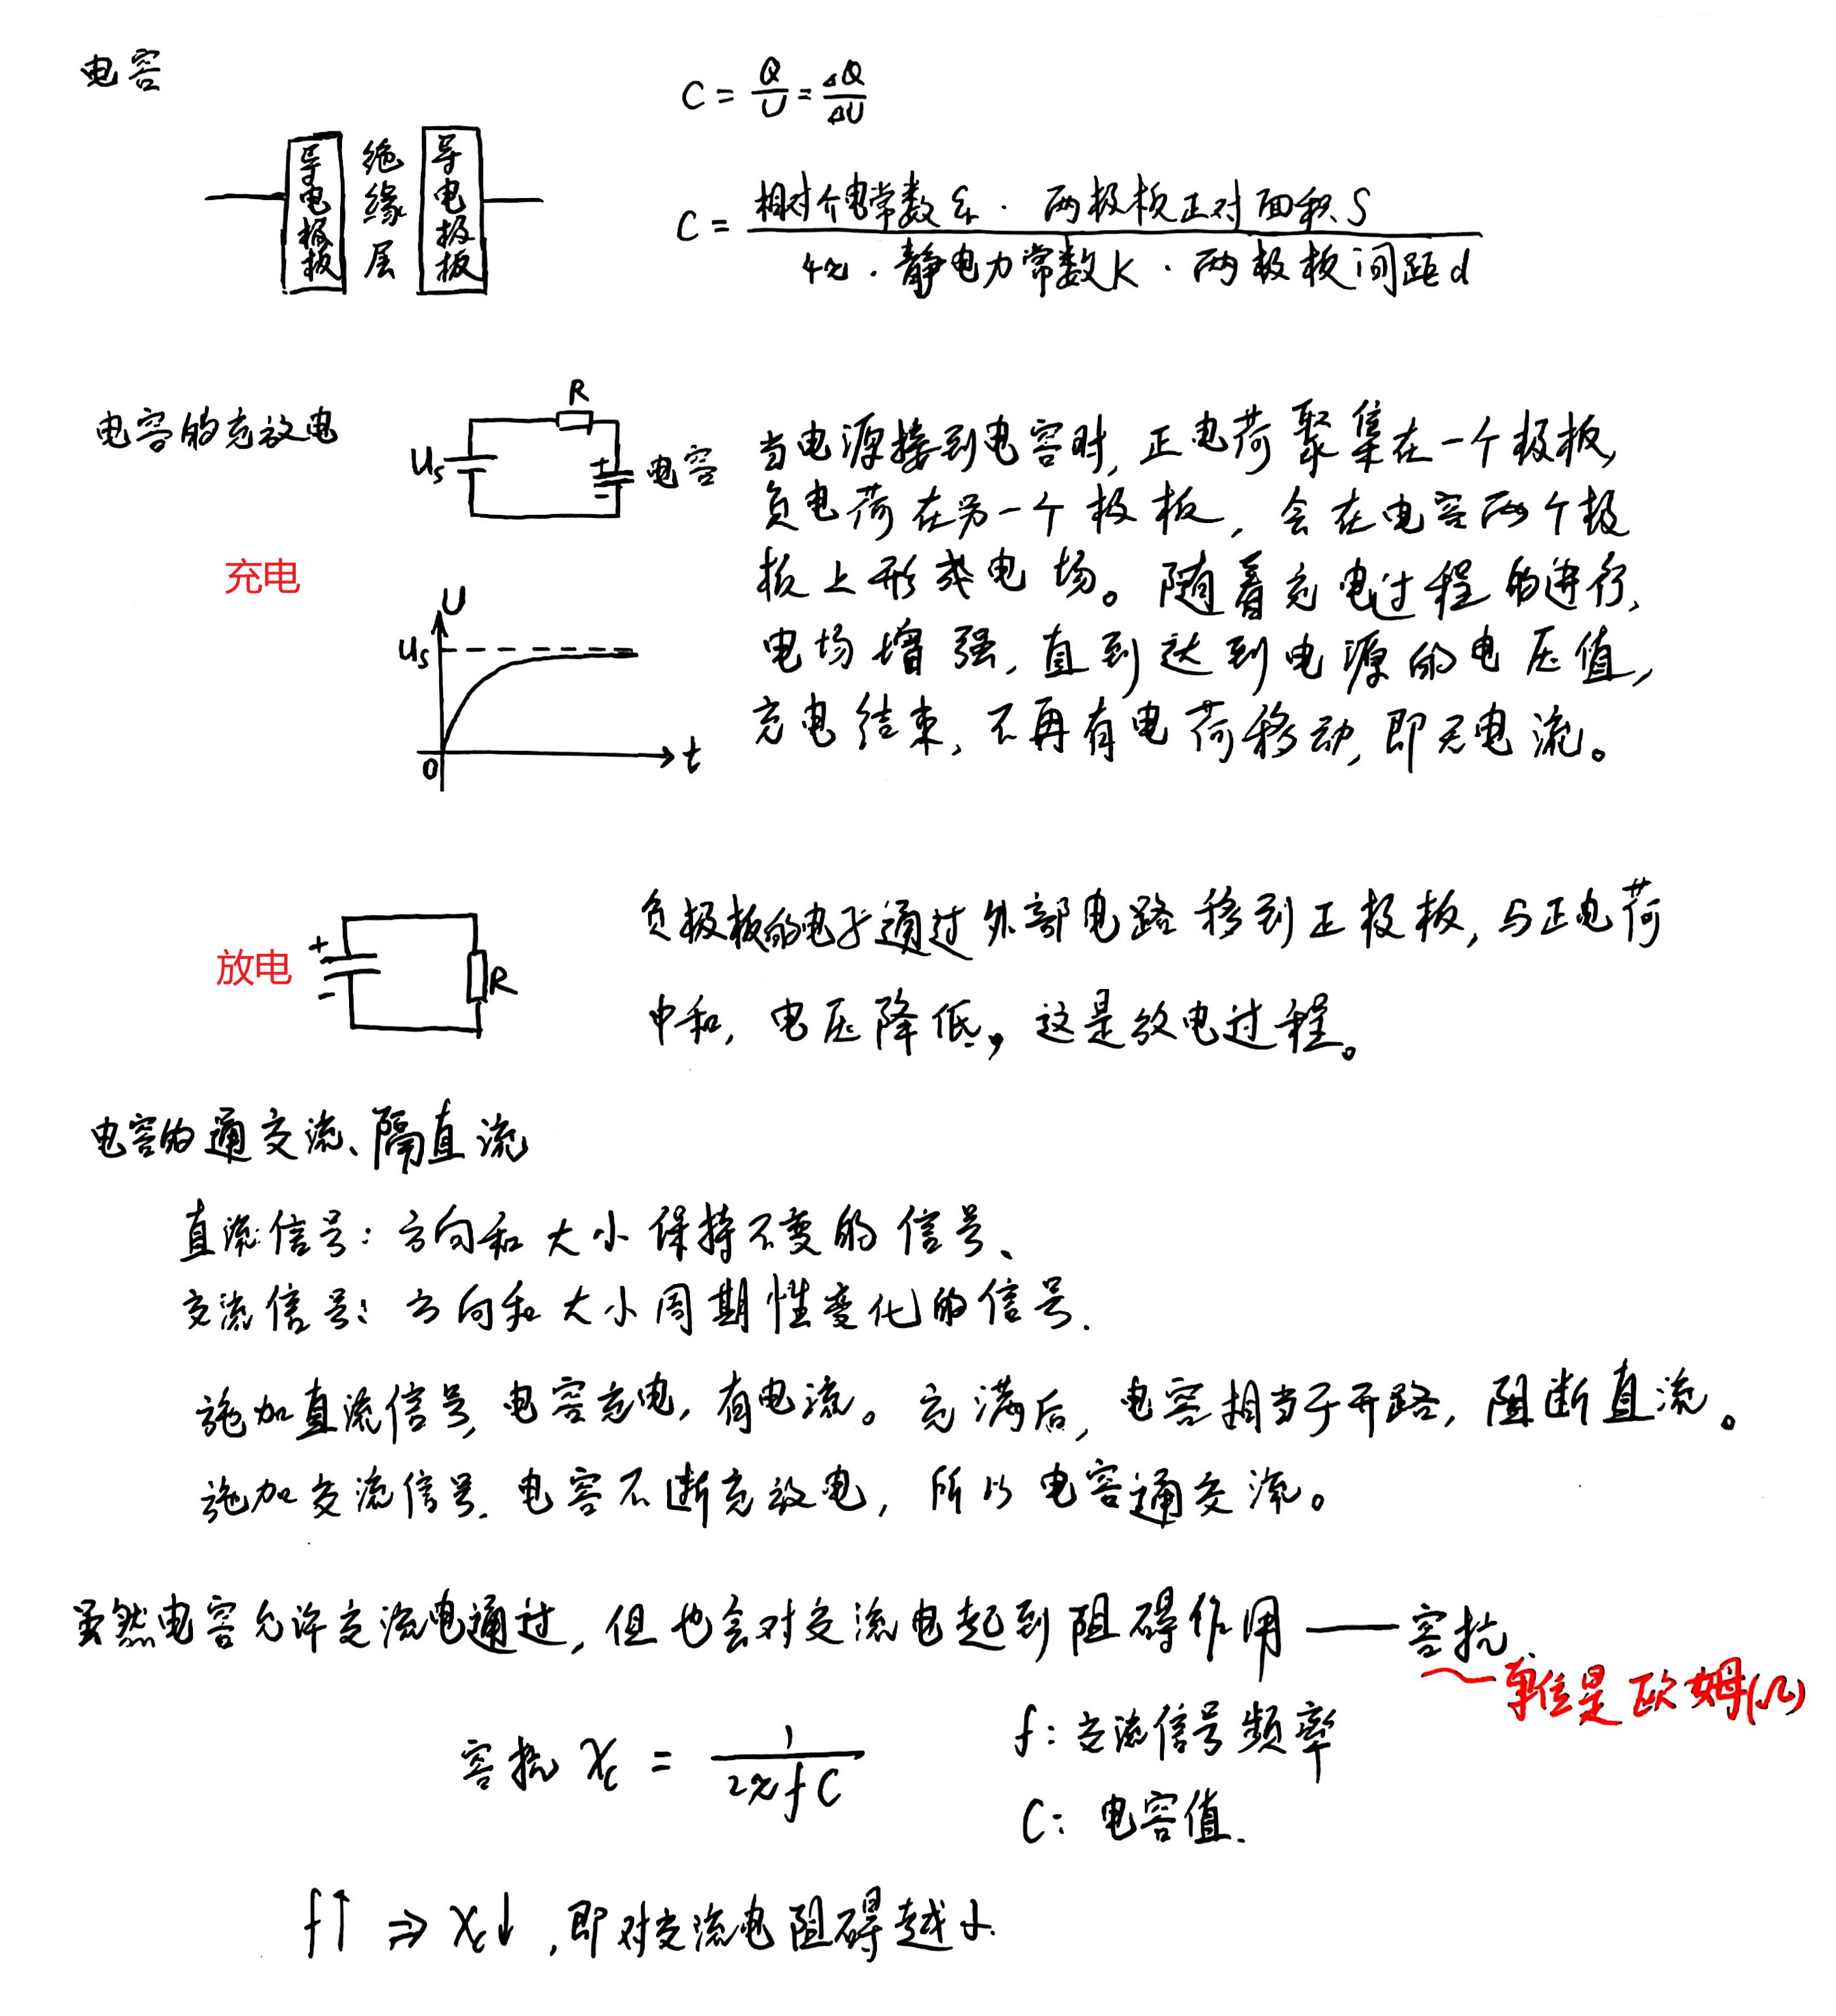 电容
C = Q/U = ΔQ/ΔU
导电极板 绝缘层 导电极板
C = 相对介电常数εr · 两极板正对面积S / 4π · 静电力常数K · 两极板间距d
电容的充放电
R
Us
+
-
电容
当电源接到电容时, 正电荷聚集在一个极板,
负电荷在另一个极板, 会在电容两个极
板上形成电场。随着充电过程的进行,
电场增强, 直到达到电源的电压值,
充电结束, 不再有电荷移动, 即无电流。
充电
U
Us
0
t
放电
+
-
R
负极板的电子通过外部电路移到正极板, 与正电荷
中和, 电压降低, 这是放电过程。
电容的通交流、隔直流
直流信号: 方向和大小保持不变的信号、
交流信号: 方向和大小周期性变化的信号.
施加直流信号, 电容充电, 有电流。充满后, 电容相当于开路, 阻断直流。
施加交流信号. 电容不断充放电, 所以电容通交流。
虽然电容允许交流电通过, 但也会对交流电起到阻碍作用 —— 容抗
单位是欧姆(Ω)
容抗 Xc = 1/2πfC
f: 交流信号频率
C: 电容值.
f↑ ⇒ Xc↓, 即对交流电阻碍越小.